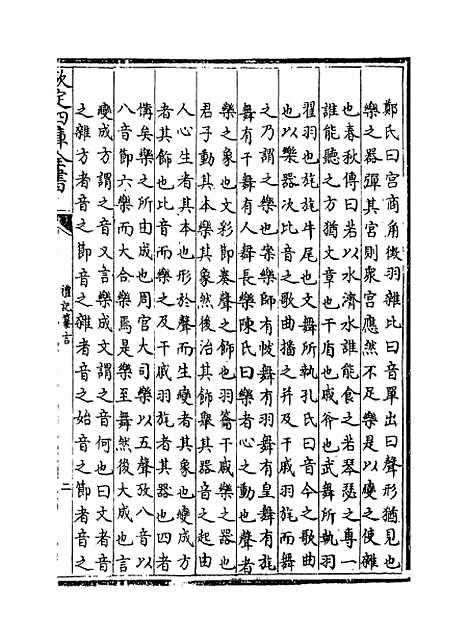 鄭氏曰宫商角徵羽雜比曰音單出曰聲形猶見也
樂之器彈其宫則衆宫應然不足樂是以變之使雜
也春秋傳曰若以水濟水誰能食之若琴瑟之専一
誰能聽之方猶文章也干盾也戚斧也武舞所執羽
翟羽也旄旄牛尾也文舞所執孔氏曰音今之歌曲
也以樂器次比音之歌曲播之并及干戚羽旄而舞
之乃謂之樂也案樂師有帗舞有羽舞有皇舞有旄
舞有干舞有人舞長樂陳氏曰樂者心之動也聲者
樂之象也文彩節奏聲之飾也羽籥干戚樂之器也
君子動其本樂其象然後治其飾舉其器音之起由
人心生者其本也形於聲而生變者其象也變成方
者其飾也比音而樂之及干戚羽旄者其器也四者
備矣樂之所由成也周官大司樂以五聲攷八音以
八音節六樂而大合樂焉是樂至舞然後大成也言
變成方謂之音又言樂成文謂之音何也曰文者音
之雜方者音之節音之雜者音之始音之節者音之
欽定四庫全書
禮記纂言
二